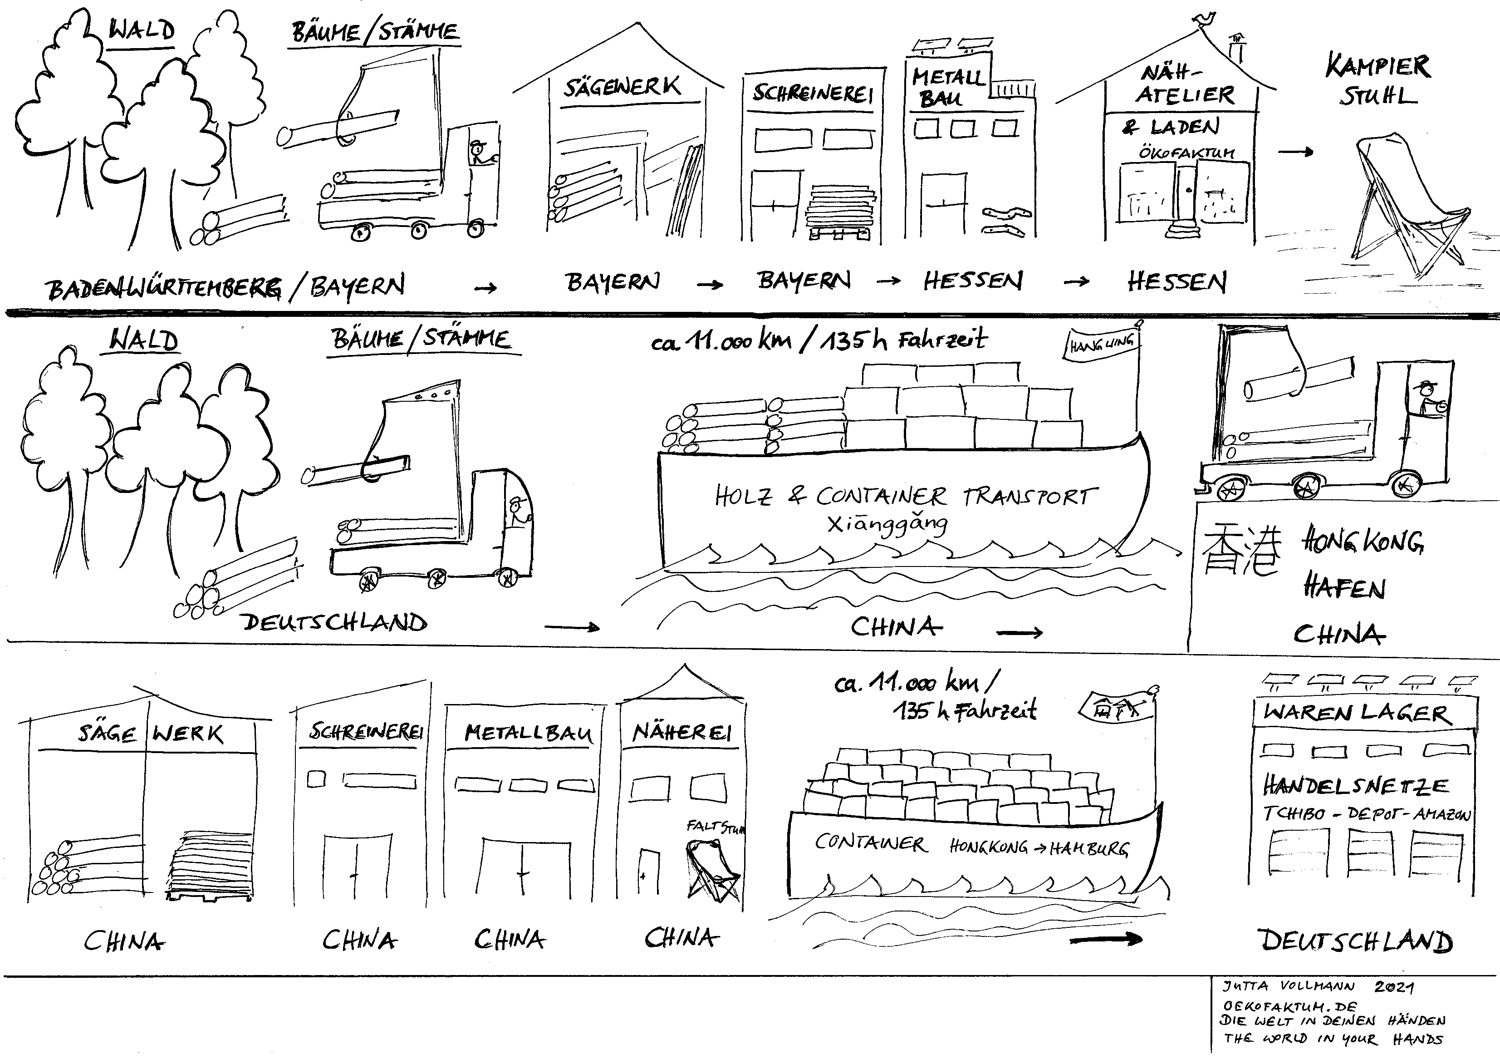 WALD
BÄUME/STÄMME
SÄGEWERK
SCHREINEREI
METALL
BAU
NÄH-
ATELIER
& LADEN
ÖKOFAKTUM
KAMPIER
STUHL
BADENWÜRTTEMBERG/BAYERN → BAYERN → BAYERN → HESSEN → HESSEN
WALD
BÄUME/STÄMME
ca 11.000 km / 135 h Fahrzeit
HOLZ & CONTAINER TRANSPORT
Xiānggǎng
香港 HONGKONG
HAFEN
CHINA
DEUTSCHLAND → CHINA →
SÄGE WERK
SCHREINEREI
METALLBAU
NÄHEREI
FALTSTUHL
ca. 11.000 km /
135 h Fahrzeit
CONTAINER HONGKONG → HAMBURG
WARENLAGER
HANDELSNETZE
TCHIBO - DEPOT - AMAZON
CHINA CHINA CHINA CHINA → DEUTSCHLAND
JUTTA VOLLMANN 2021
OEKOFAKTUM.DE
DIE WELT IN DEINEN HÄNDEN
THE WORLD IN YOUR HANDS